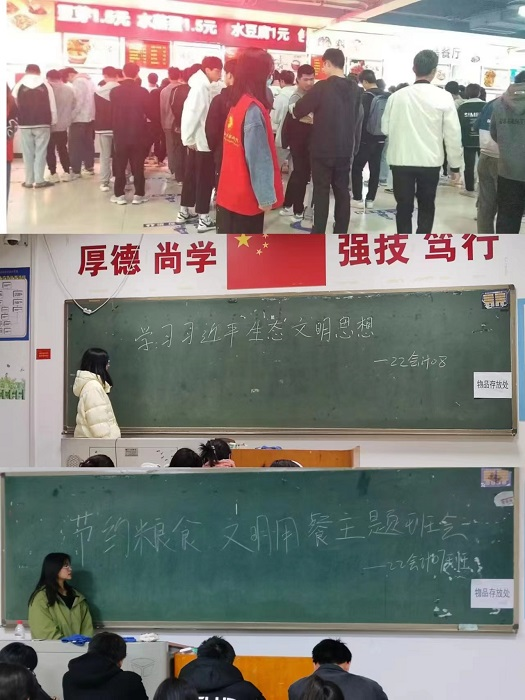 豆芽1.5元 水蒸蛋1.5元 水豆腐1元
餐厅
厚德 尚学 强技 笃行
学习习近平生态文明思想
—22会计08
物品存放处
节约粮食 文明用餐主题班会
物品存放处